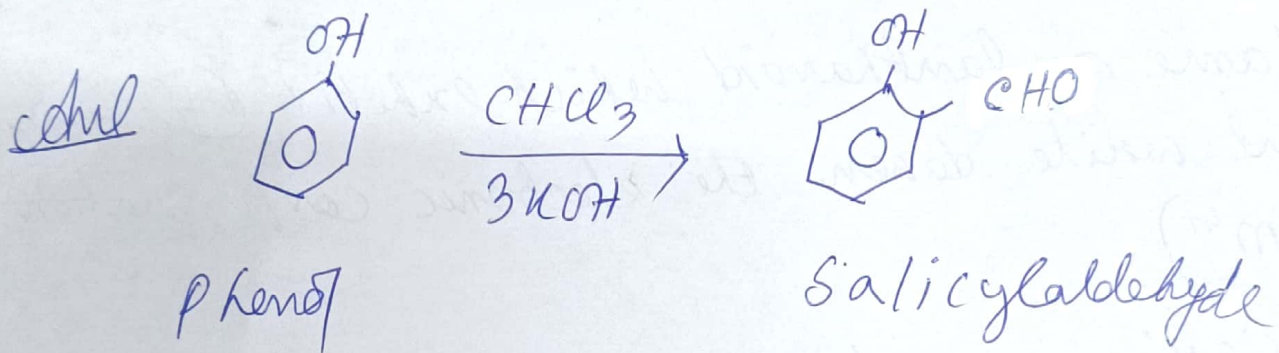 OH
CHCl3
3KOH
OH
CHO
Phenol
Salicylaldehyde